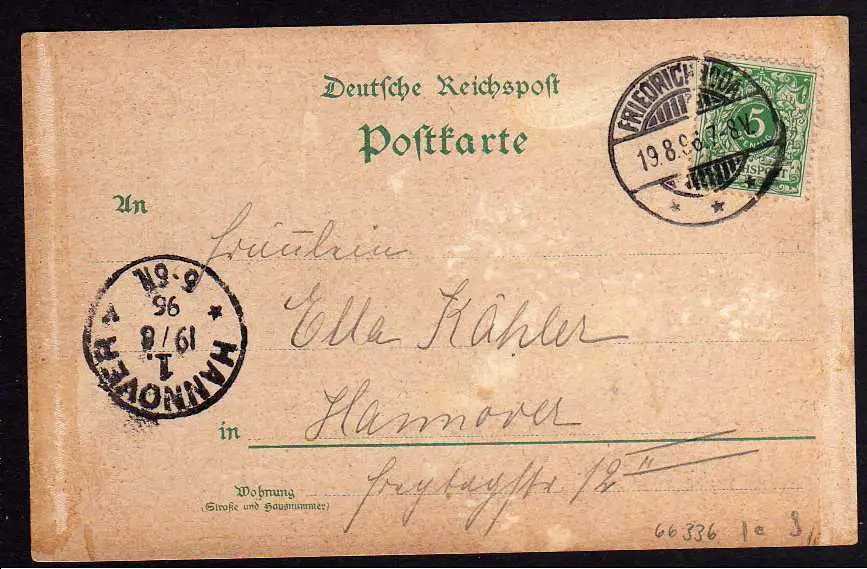 Deutsche Reichspost
Postkarte
FRIEDRICHRODA
19.8.96.7-8V.
5
An
Fräulein
Ella Köhler
in Hannover
Freytagstr 12 II
Wohnung
(Straße und Hausnummer)
HANNOVER
1.
19/8
96
5-6N.
66336 1a